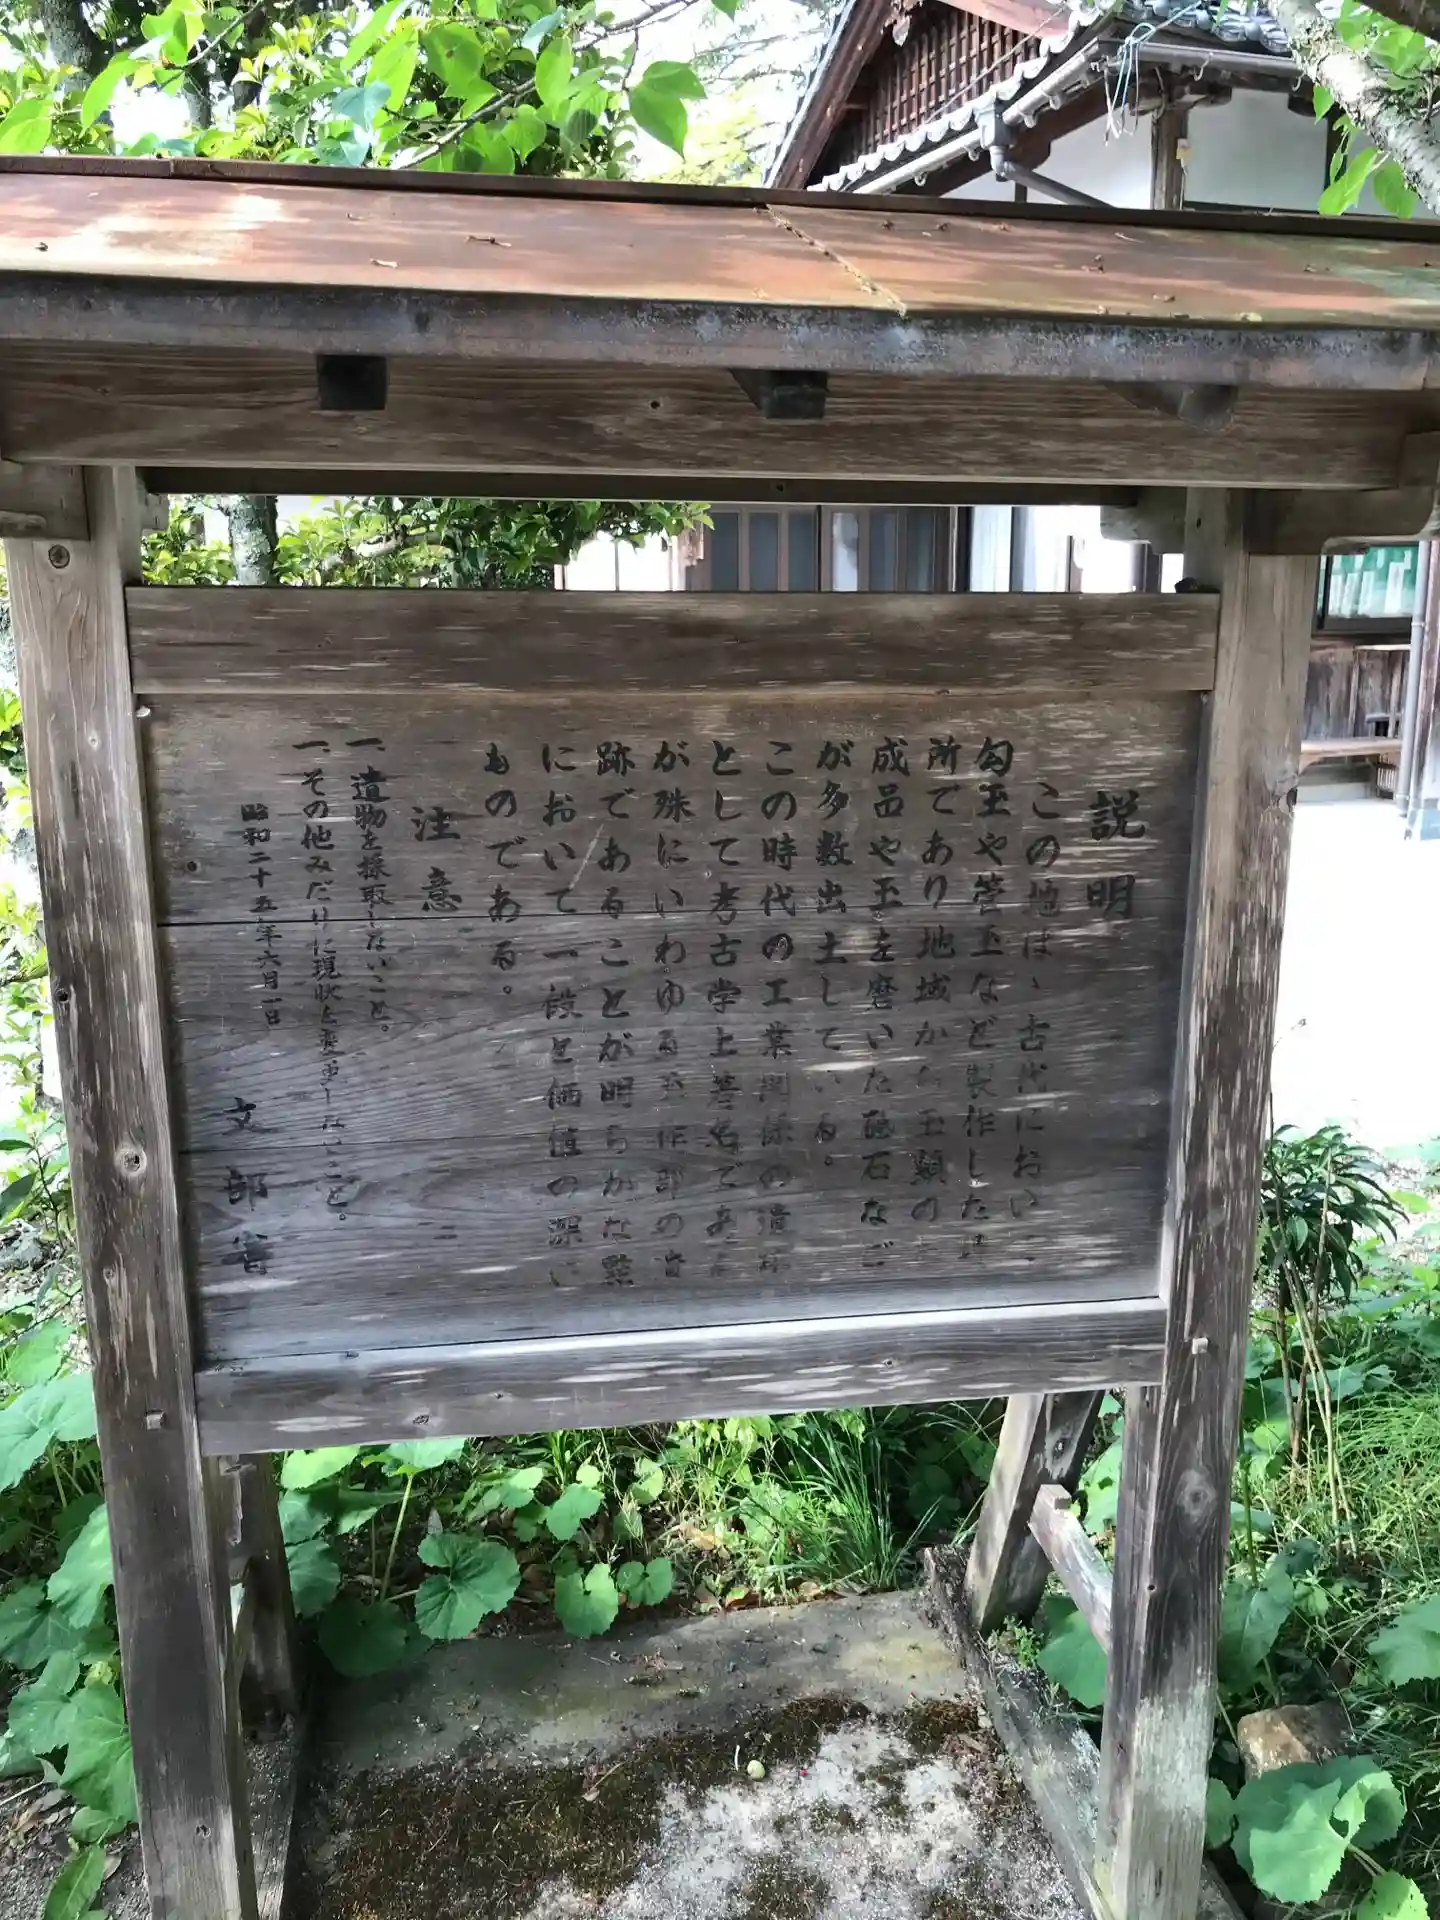 説明
この地は、古代におい
勾玉や管玉など製作した
所であり地域から玉類の
成品や玉を磨いた砥石など
が多数出土している。
この時代の工業関係の遺跡
として考古学上著名であ
が殊にいわゆる玉作部の遺
跡であることが明らかな點
において一段と価値の深い
ものである。
注意
一、遺物を採取しないこと。
一、その他みだりに現状を変更しないこと。
昭和二十五年六月一日
文部省